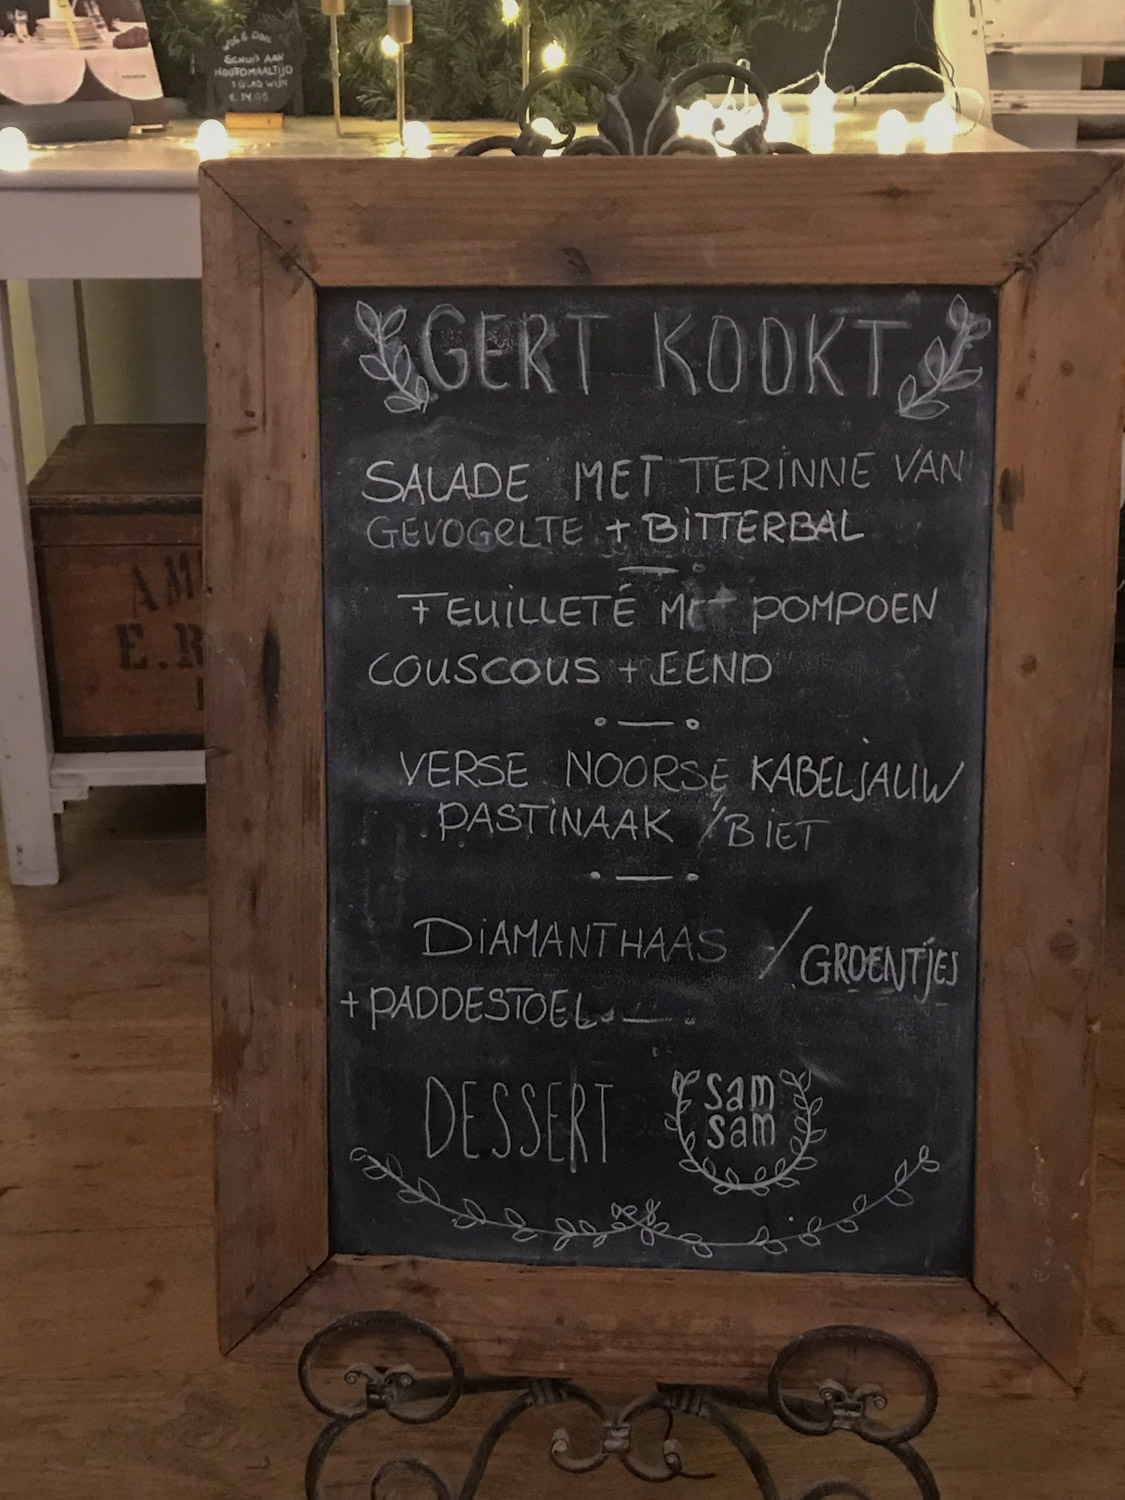 SCHUIF AAN
HOOFDMAALTIJD
1 GLAS WIJN
AM
E.R
GERT KOOKT
SALADE MET TERINNE VAN
GEVOGELTE + BITTERBAL
FEUILLETÉ MET POMPOEN
COUSCOUS + EEND
VERSE NOORSE KABELJAUW
PASTINAAK / BIET
DIAMANTHAAS / GROENTJES
+ PADDESTOEL
DESSERT
sam
sam